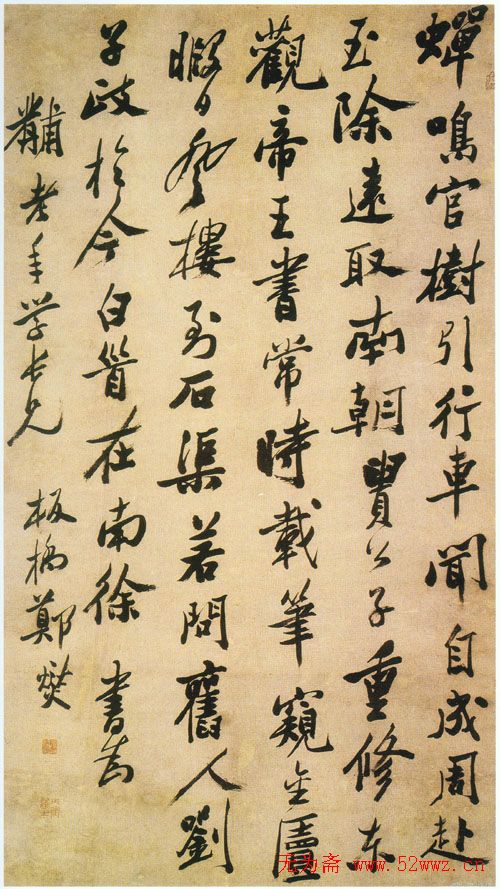 蟬鳴官樹引行車聞自成周赴
玉除遠取南朝貴公子重修東
觀帝王書常時載筆窺金匱
暇日登樓到石渠若問舊人劉
子政於今白首在南徐 書為
黼老年學長兄 板橋鄭燮
无为斋 www.52wwz.cn